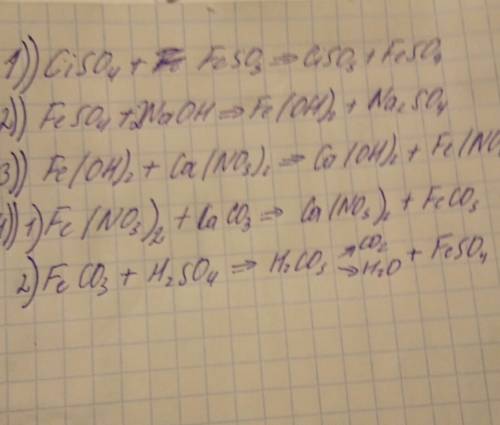 1)) CuSO₄ + FeSO₃ ⇒ CuSO₃ + FeSO₄
2)) FeSO₄ + 2NaOH ⇒ Fe(OH)₂ + Na₂SO₄
3)) Fe(OH)₂ + Ca(NO₃)₂ ⇒ Ca(OH)₂ + Fe(NO
4)) 1) Fe(NO₃)₂ + CaCO₃ ⇒ Ca(NO₃)₂ + FeCO₃
2) FeCO₃ + H₂SO₄ ⇒ H₂CO₃ ↗CO₂ →H₂O + FeSO₄